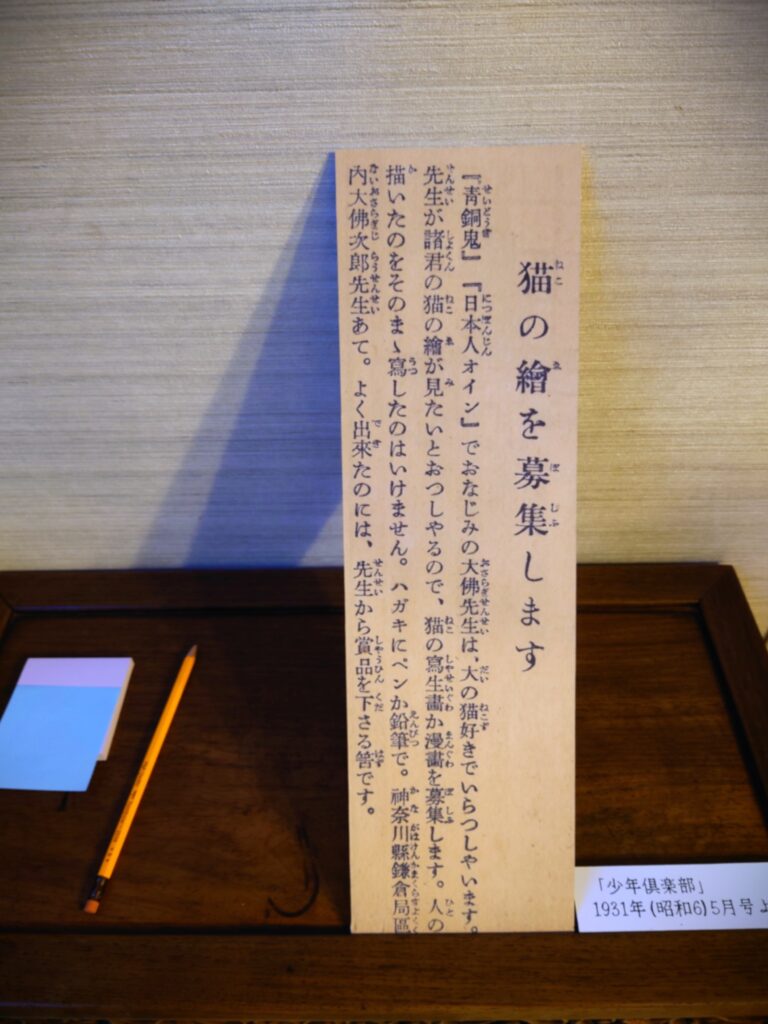 猫の繪を募集します
『青銅鬼』『日本人オイン』でおなじみの大佛先生は、大の猫好きでいらつしやいます。
先生が諸君の猫の繪が見たいとおつしやるので、猫の寫生畫か漫畫を募集します。人の
描いたのをそのまゝ寫したのはいけません。ハガキにペンか鉛筆で。神奈川縣鎌倉局區
内大佛次郎先生あて。よく出來たのには、先生から賞品を下さる筈です。
「少年倶楽部」
1931年(昭和6)5月号よ